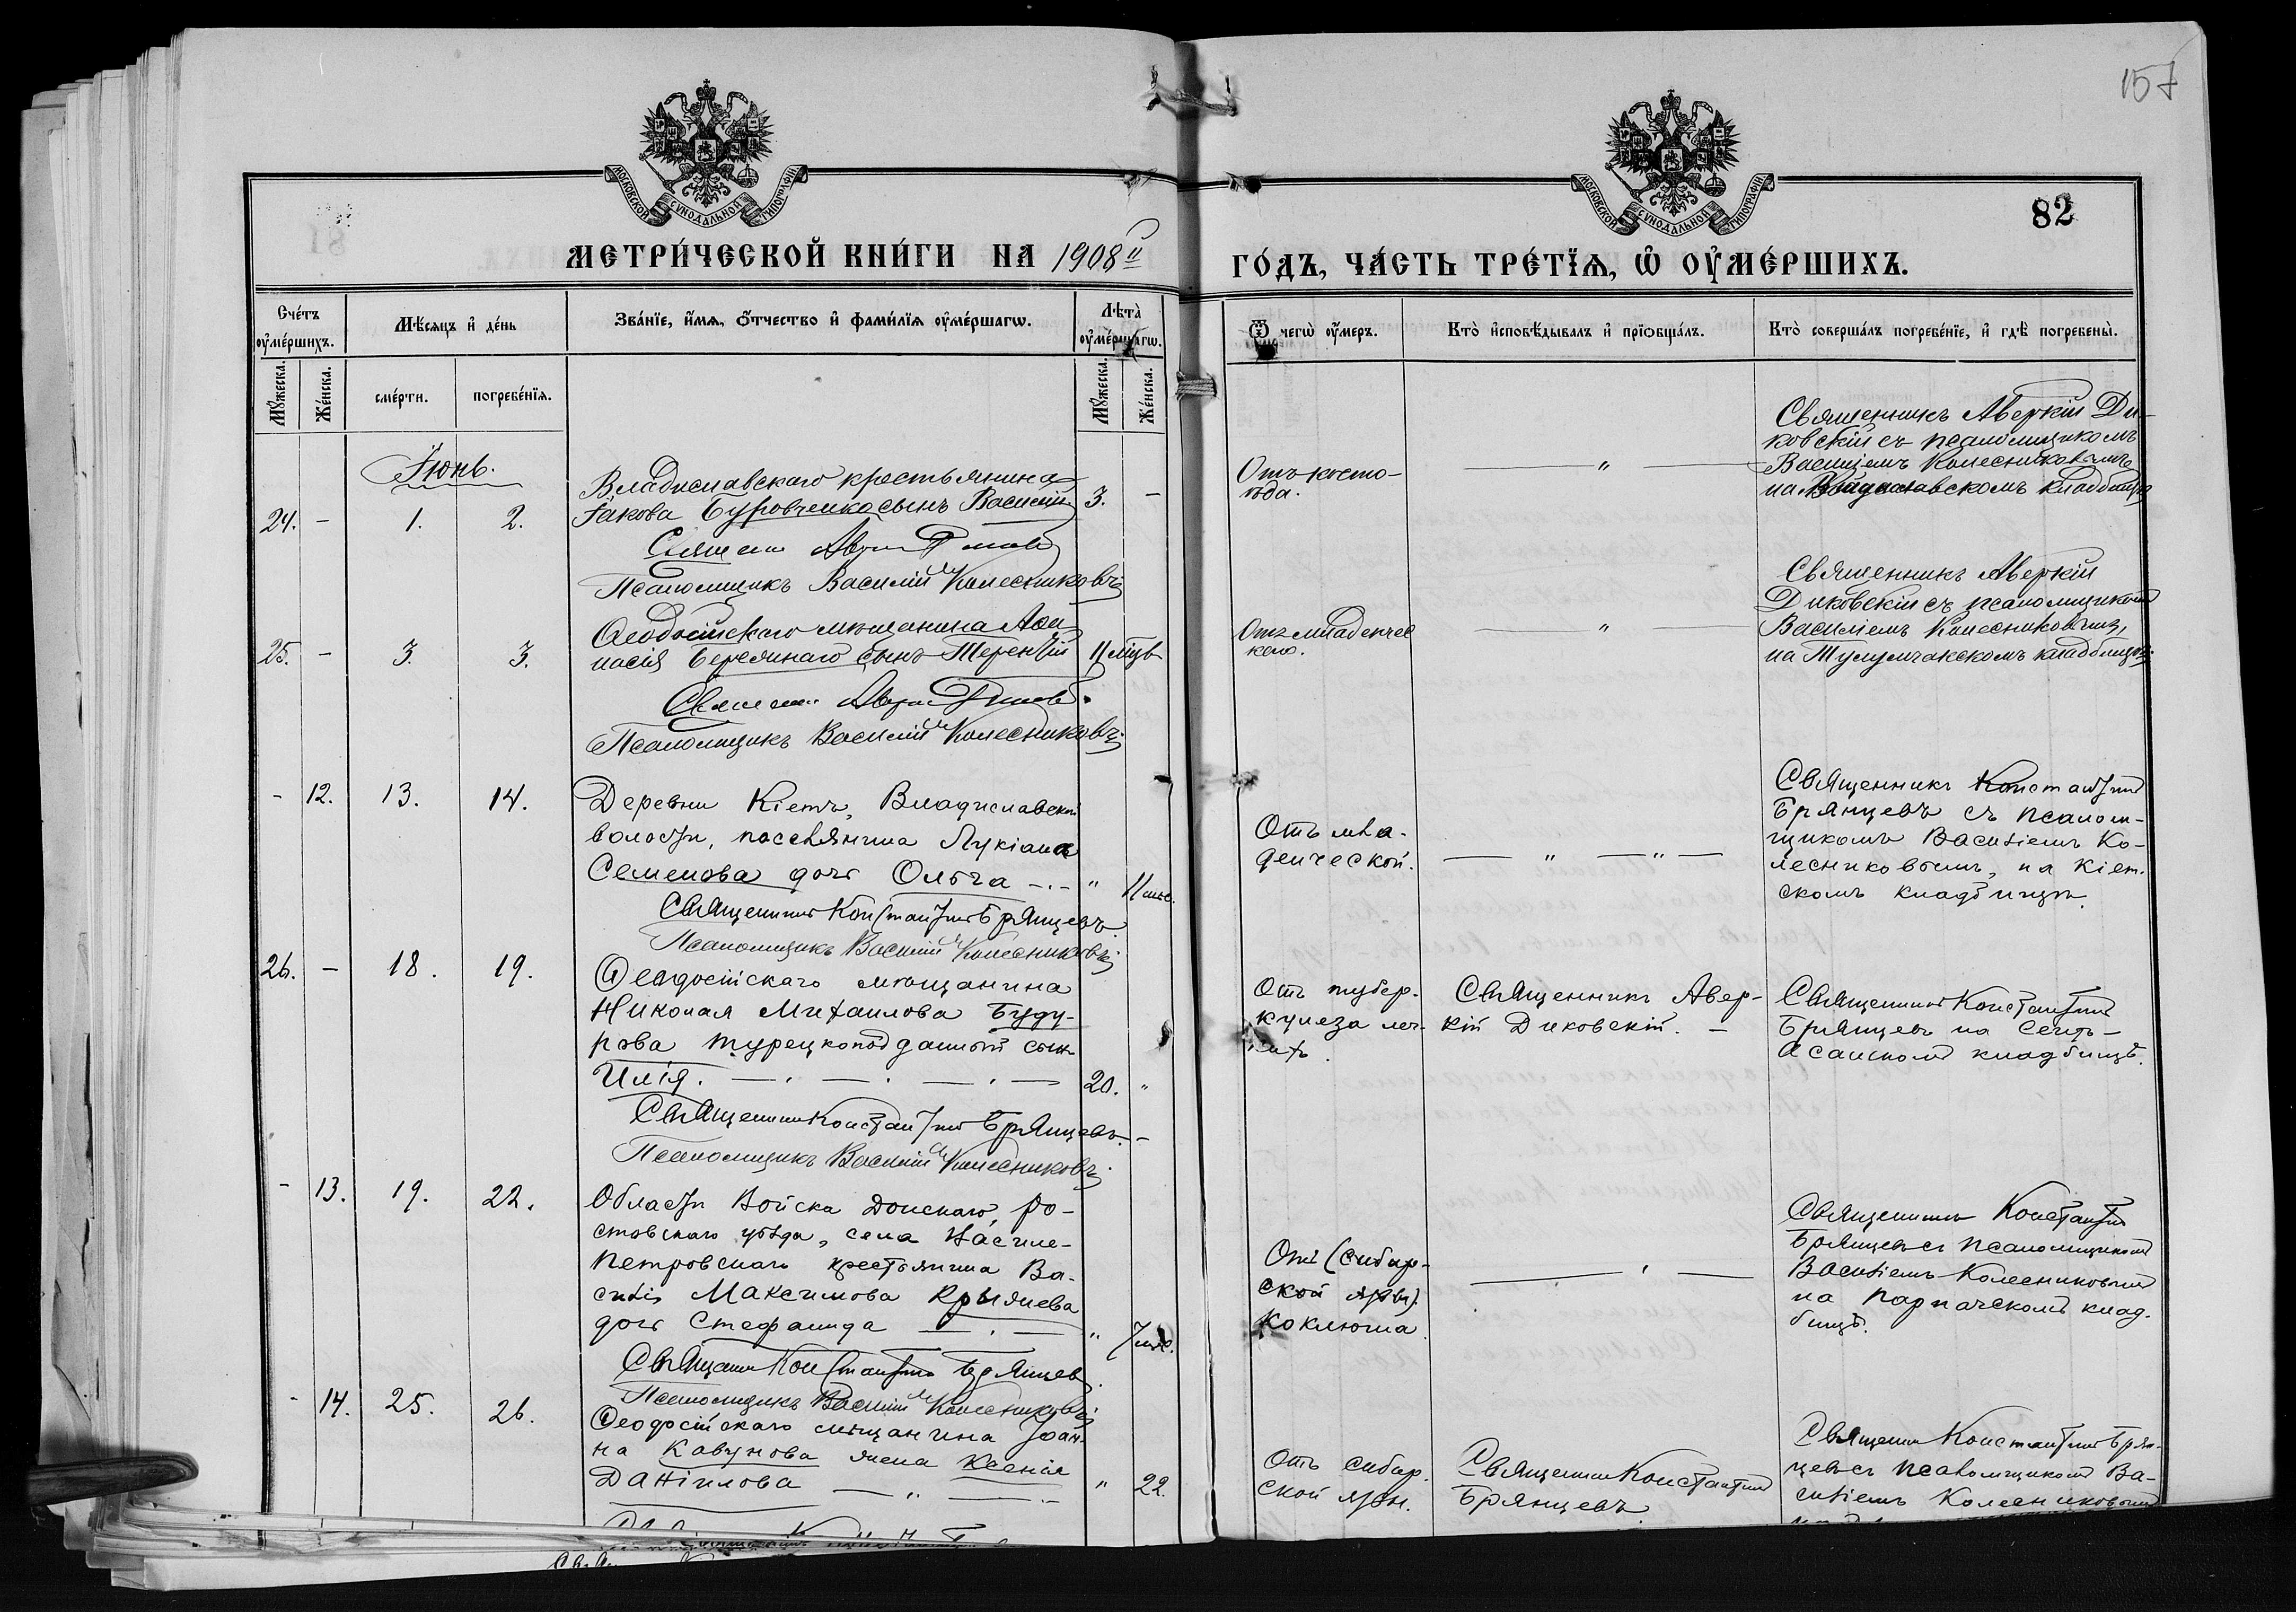 157
82
МОСКОВСКОЙ СѴНОДАЛЬНОЙ ТИПОГРАФІИ
МОСКОВСКОЙ СѴНОДАЛЬНОЙ ТИПОГРАФІИ
МЕТРИ́ЧЕСКОЙ КНИ́ГИ НА 1908й
ГО́ДЪ, ЧА́СТЬ ТРЕ́ТЇѦ, Ѡ҆ ОУ҆МЕ́РШИХЪ.
Сче́тъ оу҆ме́ршихъ.
Мѣ́сяцъ и҆ де́нь
Зва́нїе, и҆́мѧ, ѻ҆́тчество и҆ фами́лїѧ оу҆ме́ршагѡ.
Лѣта̀ оу҆ме́ршагѡ.
Ѿ чегѡ̀ оу҆́меръ.
Кто̀ и҆сповѣ́дывалъ и҆ прїѡбща́лъ.
Кто̀ соверша́лъ погребе́нїе, и҆ гдѣ̀ погребены̀.
Мꙋ́жеска.
Же́нска.
сме́рти.
погребе́нїѧ.
Мꙋ́жеска.
Же́нска.
Іюнь.
24. - 1. 2.
Владиславскаго крестьянина
Іакова Буровченко сынъ Василій 3. -
Псаломщикъ Василій Колесниковъ
Отъ косто-
ѣда.
— " —
Священникъ Аверкій Ди-
ковскій съ псаломщикомъ
Василіемъ Колесниковымъ
на Владиславскомъ кладбищѣ
25. - 3. 3.
Ѳеодосійскаго мѣщанина Аѳа
насія Беремнаго сынъ Терентій 11 мцв
Псаломщикъ Василій Колесниковъ
Отъ младенчес
каго.
— " —
Священникъ Аверкій
Диковскій съ псаломщикомъ
Василіемъ Колесниковымъ,
на Тулумчакскомъ кладбищѣ
- 12. 13. 14.
Деревни Кіетъ, Владиславской
волости, поселянина Лукіана
Семенова дочь Ольга -.- " 11 мѣс.
Священникъ Константинъ Брянцевъ.
Псаломщикъ Василій Колесниковъ
Отъ мла-
денческой.
— " — " —
Священникъ Константинъ
Брянцевъ съ псалом-
щикомъ Василіемъ Ко-
лесниковымъ, на Кіет-
скомъ кладбищѣ.
26. - 18. 19.
Ѳеодосійскаго мѣщанина
Николая Михаилова Буду-
рова турецкоподданный сынъ
Илія. — . — . — . — 20. "
Священникъ Константинъ Брянцевъ. -
Псаломщикъ Василій Колесниковъ.
Отъ тубер-
кулеза лег-
кихъ.
Священникъ Авер-
кій Диковскій. -
Священникъ Константинъ
Брянцевъ на Сеитъ-
Асанскомъ кладбищѣ.
- 13. 19. 22.
Области Войска Донскаго, Ро-
стовскаго уѣзда, села Васиle-
Петровскаго крестьянина Ва-
силія Максимова
дочь Стефанида — . — " 7 мѣс.
Священникъ Константинъ Брянцевъ.
Псаломщикъ Василій Колесниковъ
Отъ (сибир-
ской язвы).
Коклюша.
Священникъ Константинъ
Брянцевъ съ псаломщикомъ
Василіемъ Колесниковымъ
на Парпачскомъ клад-
бищѣ.
- 14. 25. 26.
Ѳеодосійскаго мѣщанина Іоан-
на Кавунова жена Ксенія
Даніилова — . — " 22.
Отъ сибир.
ской язвы.
Священникъ Константинъ
Брянцевъ.
Священникъ Константинъ Брян-
цевъ съ псаломщикомъ Ва-
силіемъ Колесниковымъ